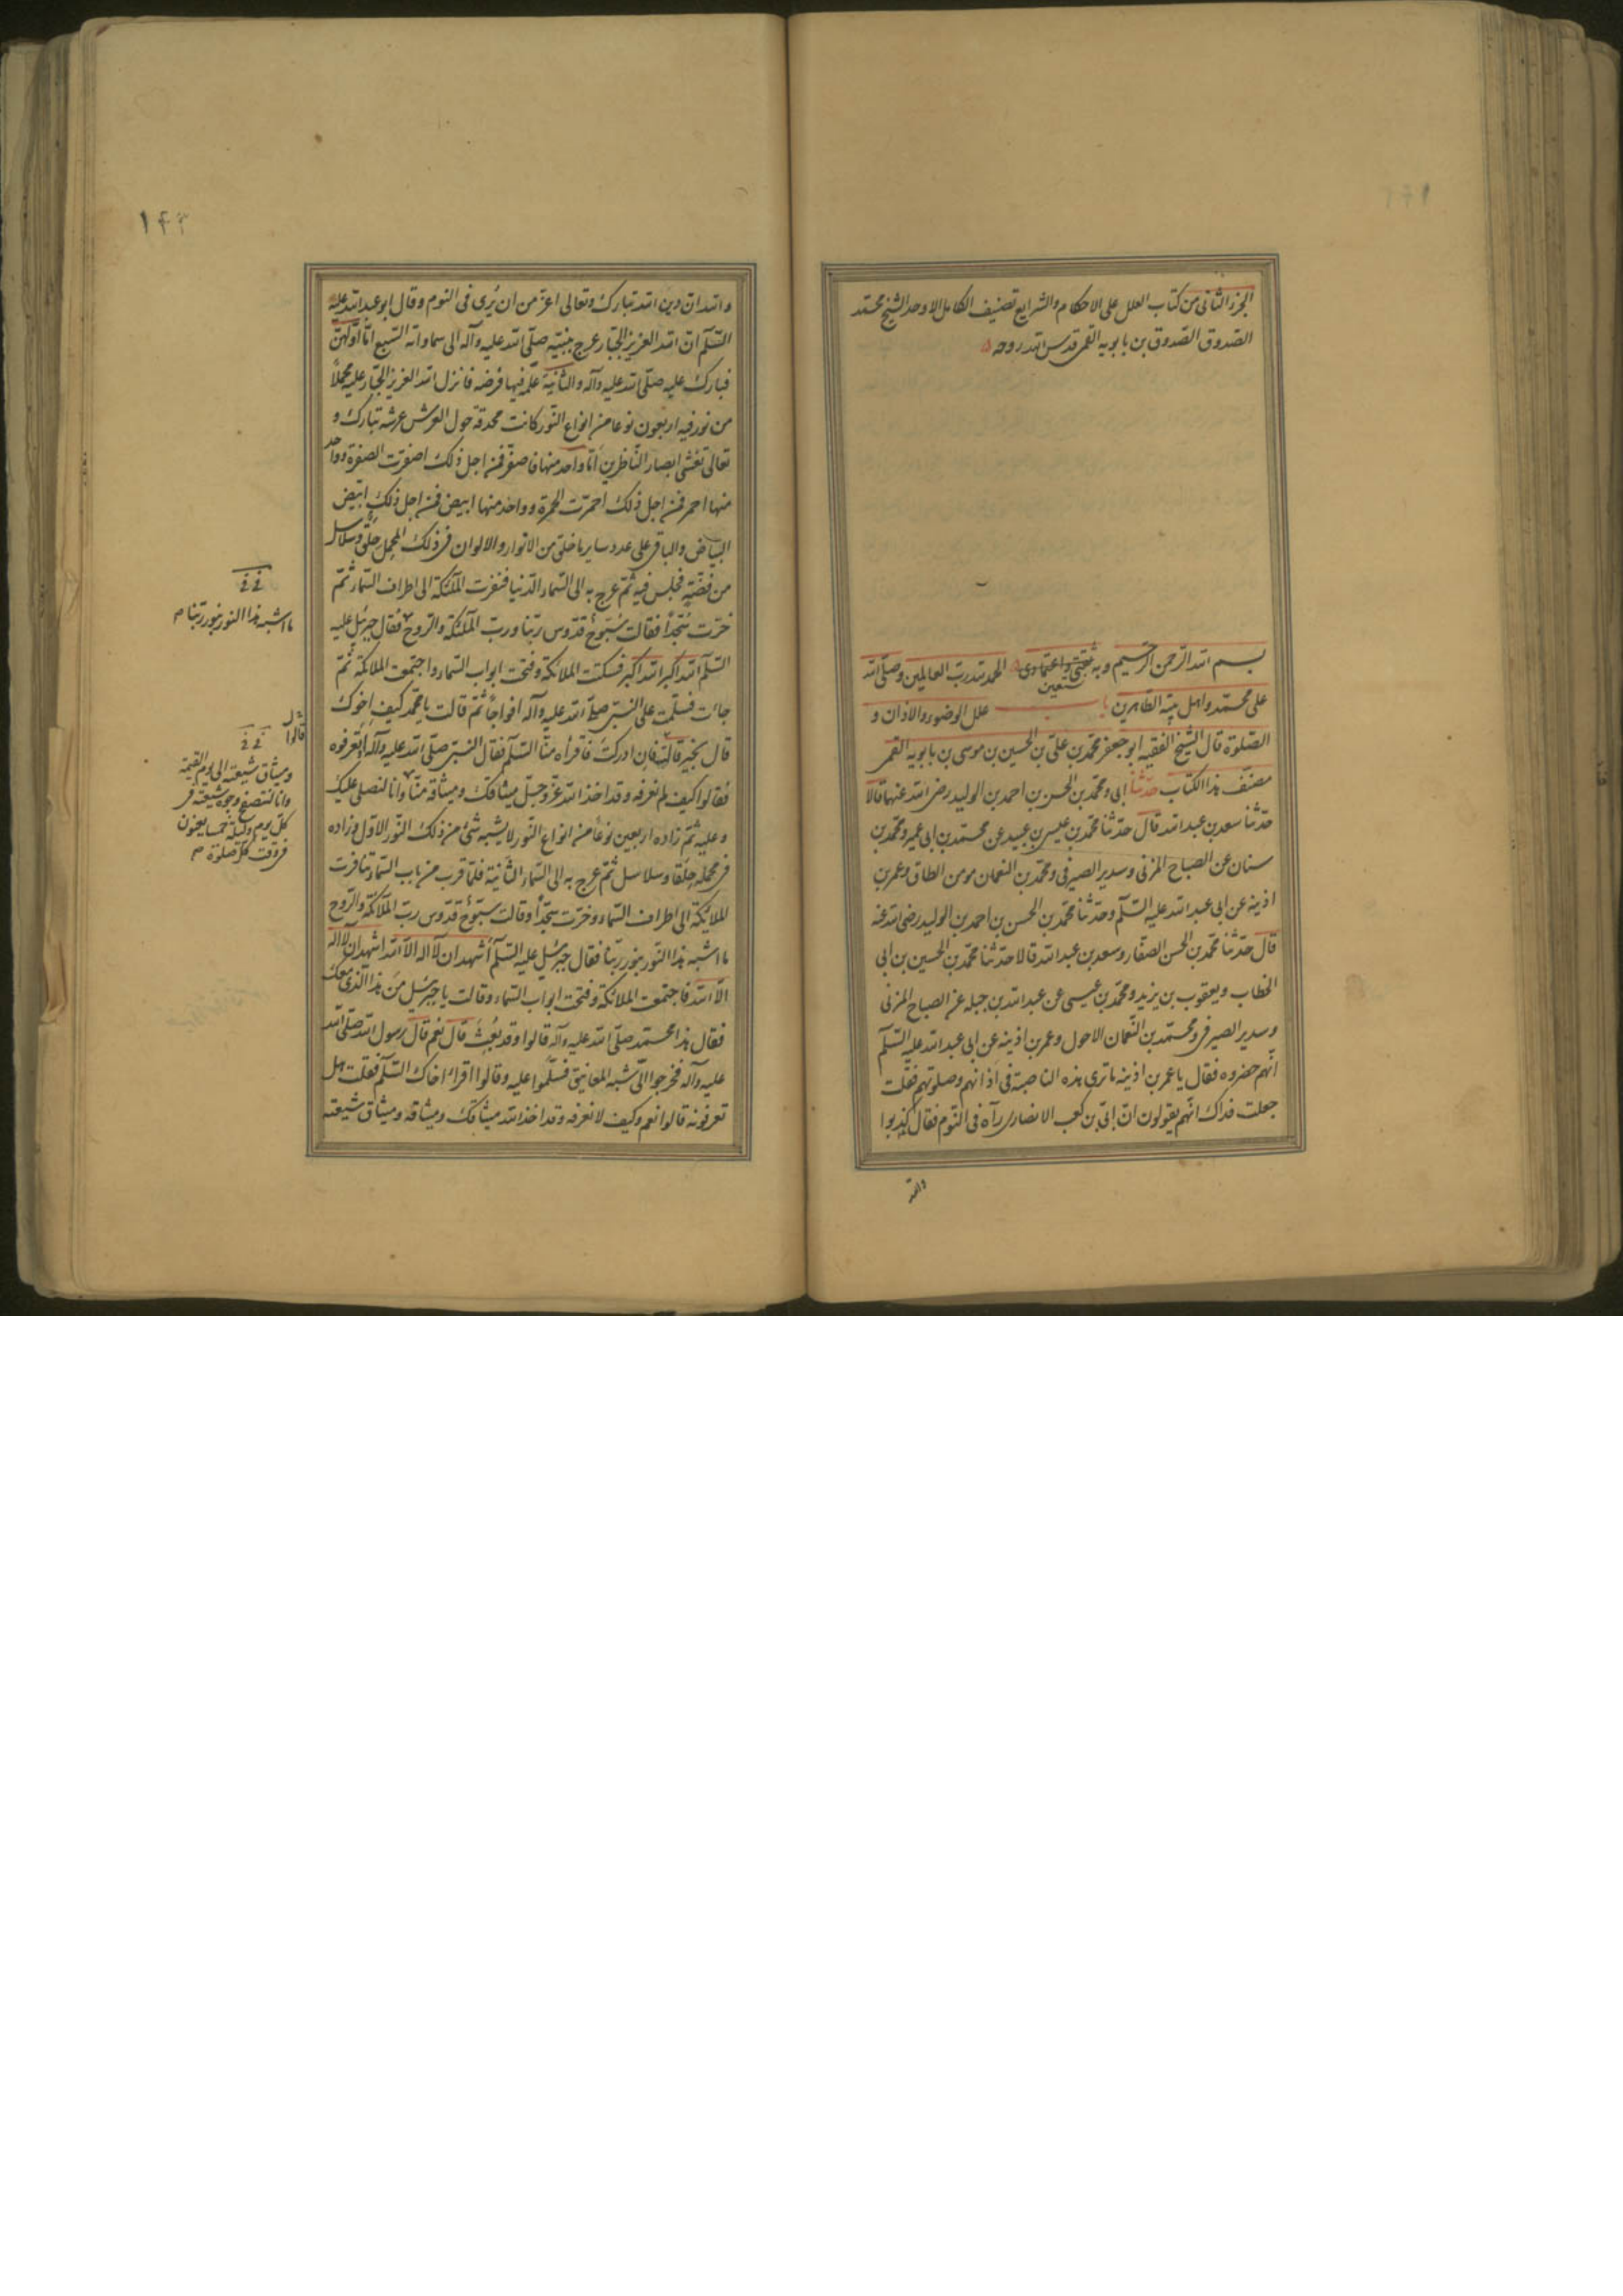 الجزء الثانی من کتاب العلل علی الاحکام والشرایع تصنیف الکامل الاوحد الشیخ محمد
الصدوق الصدوق بن بابویه القمی قدس الله روحه
بسم الله الرحمن الرحیم وبه ثقتی واعتمادی الحمد لله رب العالمین وصلی الله
نستعین
علی محمد واهل بیته الطاهرین باب علل الوضوء والاذان و
الصلوة قال الشیخ الفقیه ابو جعفر محمد بن علی بن الحسین بن موسی بن بابویه القمی
مصنف هذا الکتاب حدثنا ابی ومحمد بن الحسن بن احمد بن الولید رضی الله عنهما قالا
حدثنا سعد بن عبد الله قال حدثنا محمد بن عیسی بن عبید عن محمد بن ابی عمیر ومحمد بن
سنان عن الصباح المزنی وسدیر الصیرفی ومحمد بن النعمان مومن الطاق وعمر بن
اذینه عن ابی عبد الله علیه السلم وحدثنا محمد بن الحسن بن احمد بن الولید رضی الله عنه
قال حدثنا محمد بن الحسن الصفار وسعد بن عبد الله قالا حدثنا محمد بن الحسین بن ابی
الخطاب ویعقوب بن یزید ومحمد بن عیسی عن عبد الله بن جبله عن الصباح المزنی
وسدیر الصیرفی ومحمد بن النعمان الاحول وعمر بن اذینه عن ابی عبد الله علیه السلم
انهم حضروه فقال یا عمر بن اذینه ما تری هذه الناصبة فی اذانهم وصلوتهم فقلت
جعلت فداک انهم یقولون ان ابی بن کعب الانصاری رآه فی النوم فقال کذبوا
والله
۱۴۳
والله ان دین الله تبارک وتعالی اعز من ان یری فی النوم وقال ابو عبد الله علیه
السلم ان الله العزیز الجبار عرج بنبیه صلی الله علیه وآله الی سماواته السبع اما اولهن
فبارک علیه صلی الله علیه وآله والثانیة علمه فیها فرضه فانزل الله العزیز الجبار علیه محملا
من نور فیه اربعون نوعا من انواع النور کانت محدقة حول العرش عرشه تبارک و
تعالی تغشی ابصار الناظرین اما واحد منها فاصفر فمن اجل ذلک اصفرت الصفرة وواحد
منها احمر فمن اجل ذلک احمرت الحمرة وواحد منها ابیض فمن اجل ذلک ابیض
البیاض والباقی علی عدد سایر ما خلق من الانوار والالوان فی ذلک المحمل حلق وسلاسل
من فضة فجلس فیه ثم عرج به الی السماء الدنیا فنفرت الملئکة الی اطراف السماء ثم
خرت سجدا فقالت سبوح قدوس ربنا ورب الملئکة والروح فقال جبرئیل علیه
السلم الله اکبر الله اکبر فسکتت الملائکة وفتحت ابواب السماء واجتمعت الملائکة ثم
جائت فسلمت علی النبی صلی الله علیه وآله افواجا ثم قالت یا محمد کیف اخوک
قال بخیر قالت فان ادرکته فاقراه منا السلم فقال النبی صلی الله علیه وآله اتعرفوه
فقالوا کیف لم نعرفه وقد اخذ الله عز وجل میثاقک ومیثاقه منا وانا لنصلی علیک
وعلیه ثم زاده اربعین نوعا من انواع النور لا یشبه شئ من ذلک النور الاول وزاده
فی محمله حلقا وسلاسل ثم عرج به الی السماء الثانیة فلما قرب من باب السماء تنافرت
الملائکة الی اطراف السماء وخرت سجدا وقالت سبوح قدوس رب الملائکة والروح
ما اشبه هذا النور بنور ربنا فقال جبرئیل علیه السلم اشهد ان لا اله الا الله اشهد ان لا اله
الا الله فاجتمعت الملائکة وفتحت ابواب السماء وقالت یا جبرئیل من هذا الذی معک
فقال هذا محمد صلی الله علیه وآله قالوا وقد بعث قال نعم قال رسول الله صلی الله
علیه وآله فخرجوا الی شبه المعانیق فسلموا علیه وقالوا اقرأ اخاک السلم فقلت هل
تعرفونه قالوا نعم وکیف لا نعرفه وقد اخذ الله میثاقک ومیثاقه ومیثاق شیعته
ما اشبه هذا النور بنور ربنا م
قالوا
ومیثاق شیعته الی یوم القیمة
وانا لنتصفح وجوه شیعته فی
کل یوم ولیلة خمسا یعنون
فی وقت کل صلوة م